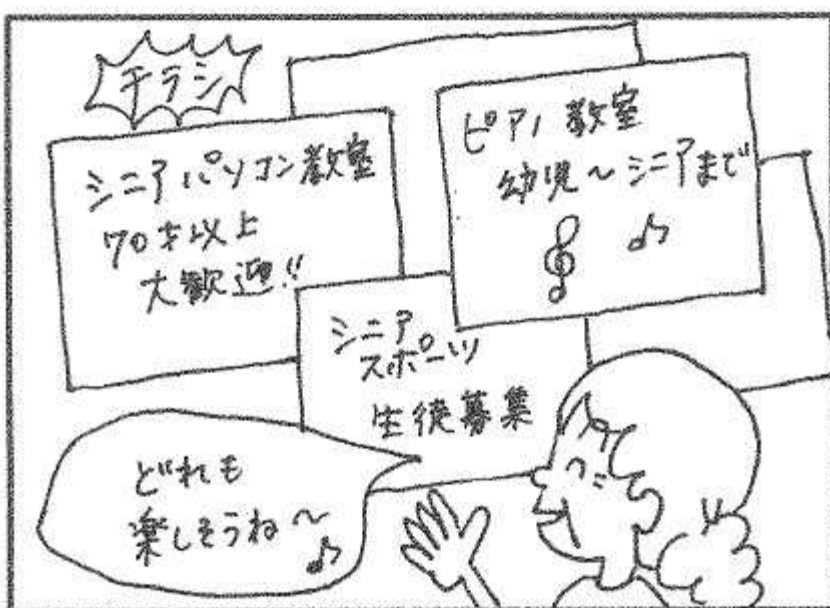 チラシ
シニアパソコン教室
70才以上
大歓迎!!
ピアノ教室
幼児~シニアまで
シニア
スポーツ
生徒募集
どれも
楽しそうね~